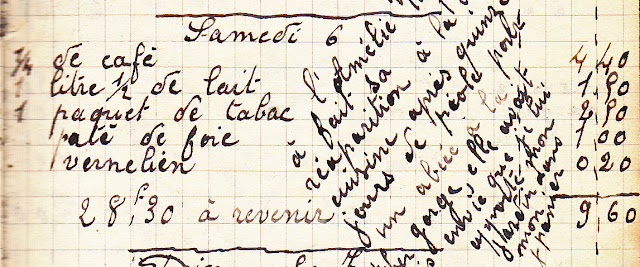 Samedi 6
1/4 de café 4,40
1 litre 1/2 de lait 1,50
1 paquet de tabac 2,50
paté de foie 1,00
vernelien 0,20
28f,30 à revenir 9,60
l'Amélie
à fait sa
réaparition à la
cuisine après quinze
jours de
un abcé a la
gorge elle avait
envie que je lui
mon
dans
mon
panier